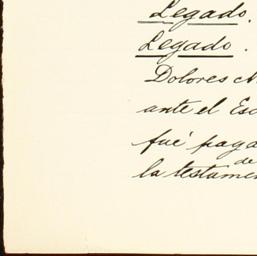 Legado.
Legado.
Dolores
ante el Esc
fué paga
de
la testamen